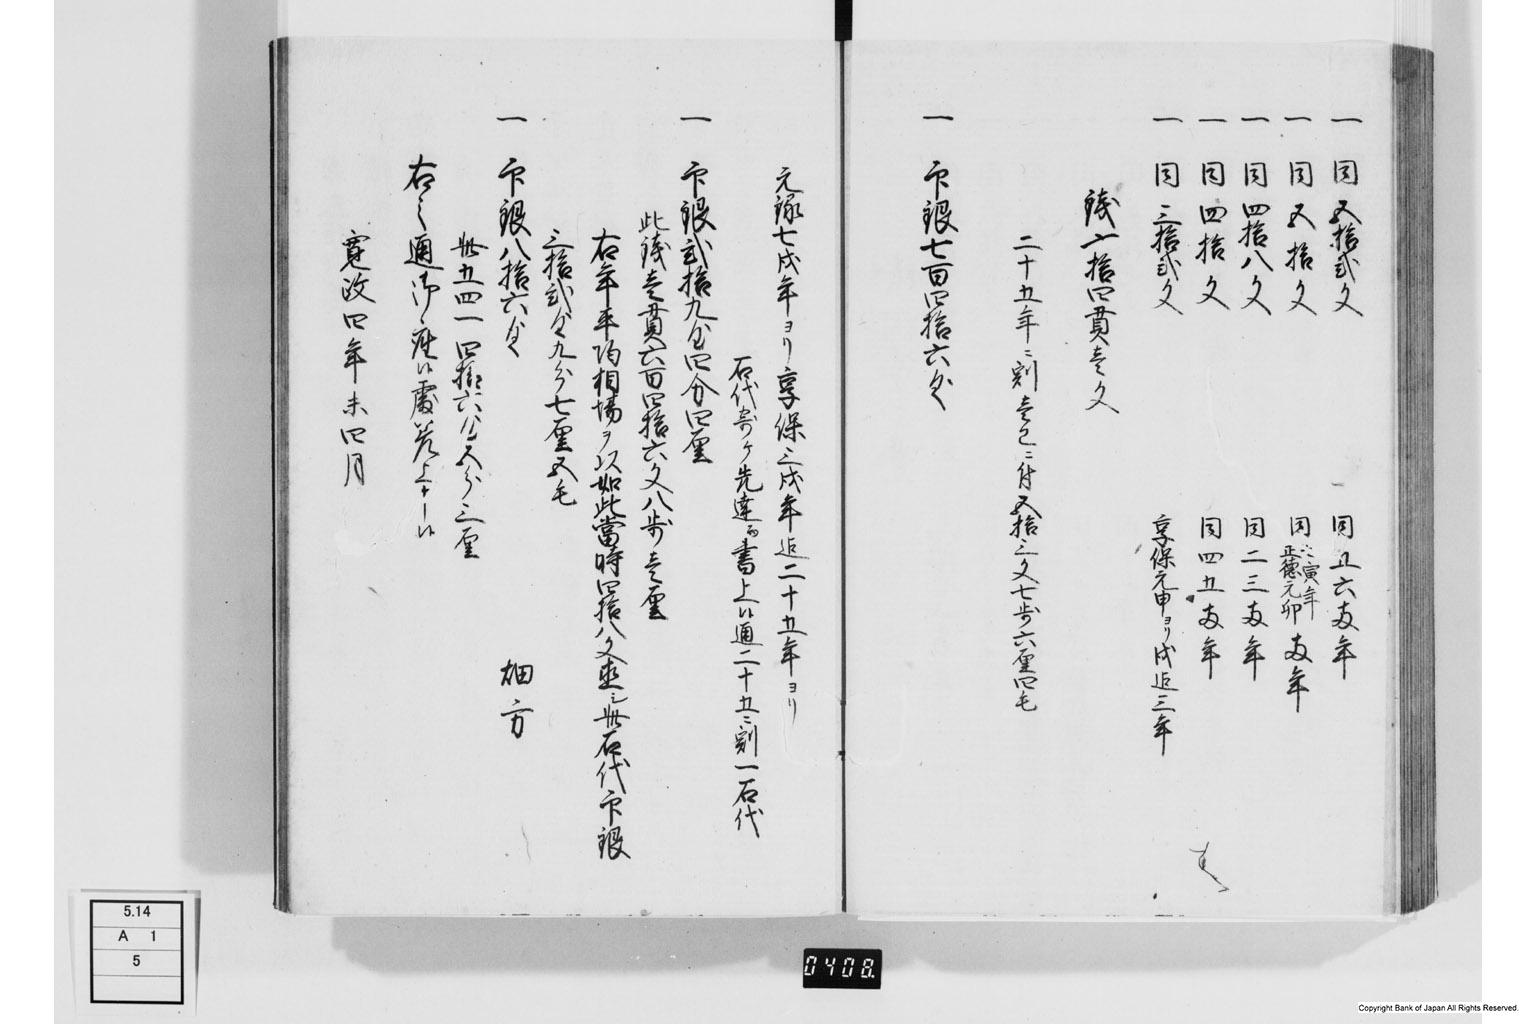 一 同 五拾弐文 同五六両年
一 同 五拾文 同七寅年正徳元卯両年
一 同 四拾八文 同二三両年
一 同 四拾文 同四五両年
一 同 三拾弐文 享保元申ヨリ戌迄三年
銭六拾四貫壱文
二十五年ニ割壱ヶ年ニ付五拾三文七歩六厘四毛
一 印銀七百四拾六匁
元禄七戌年ヨリ享保三戌年迄二十五年ヨリ
石代寄ヶ先達而書上候通二十五ニ割一石代
一 印銀弐拾九匁四分四厘
此銭壱貫六百四拾六文八歩壱厘
右年平均相場ヲ以如此當時四拾八文直之〆石代印銀
三拾弐匁九分七厘五毛
一 印銀八拾六匁 畑方
〆五四一 四拾六匁五分三厘
右之通御座候處
寛政四年未四月
5.14
A 1
5
0408
Copyright Bank of Japan All Rights Reserved.